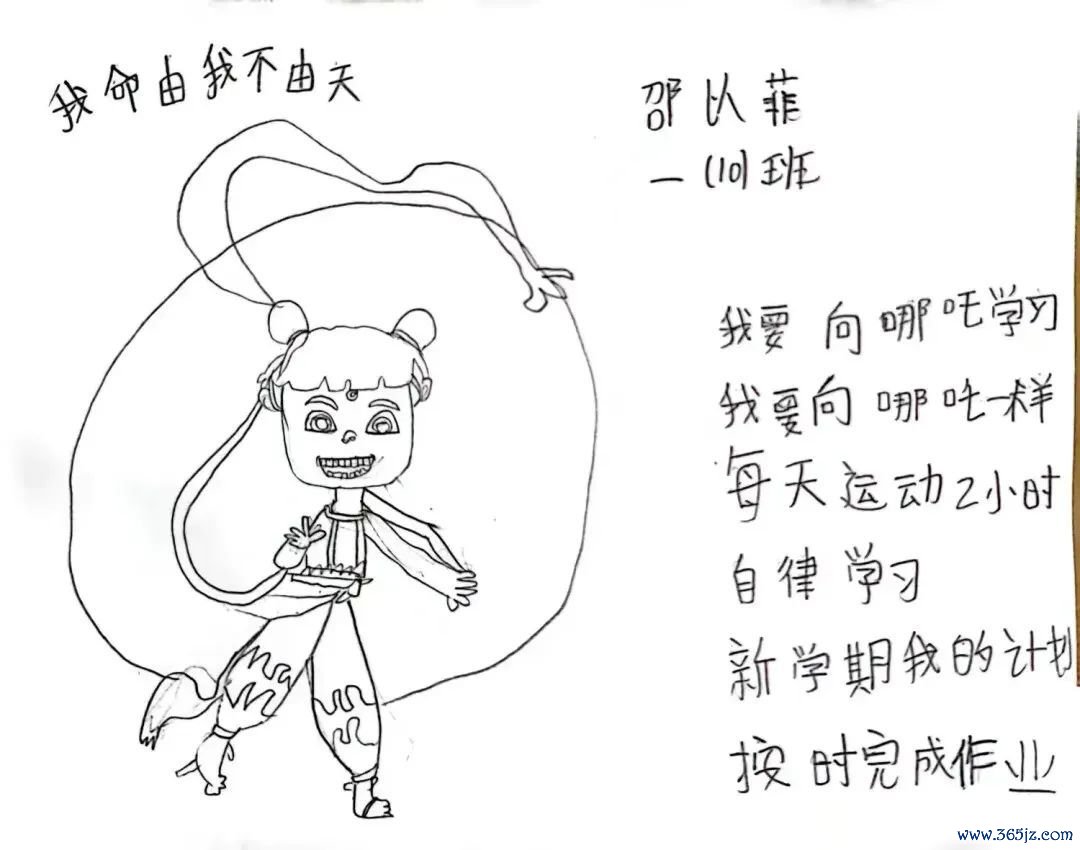 我命由我不由天
邵以菲
一(10)班
我要向哪吒学习
我要向哪吒一样
每天运动2小时
自律学习
新学期我的计划
按时完成作业
www.365jz.com